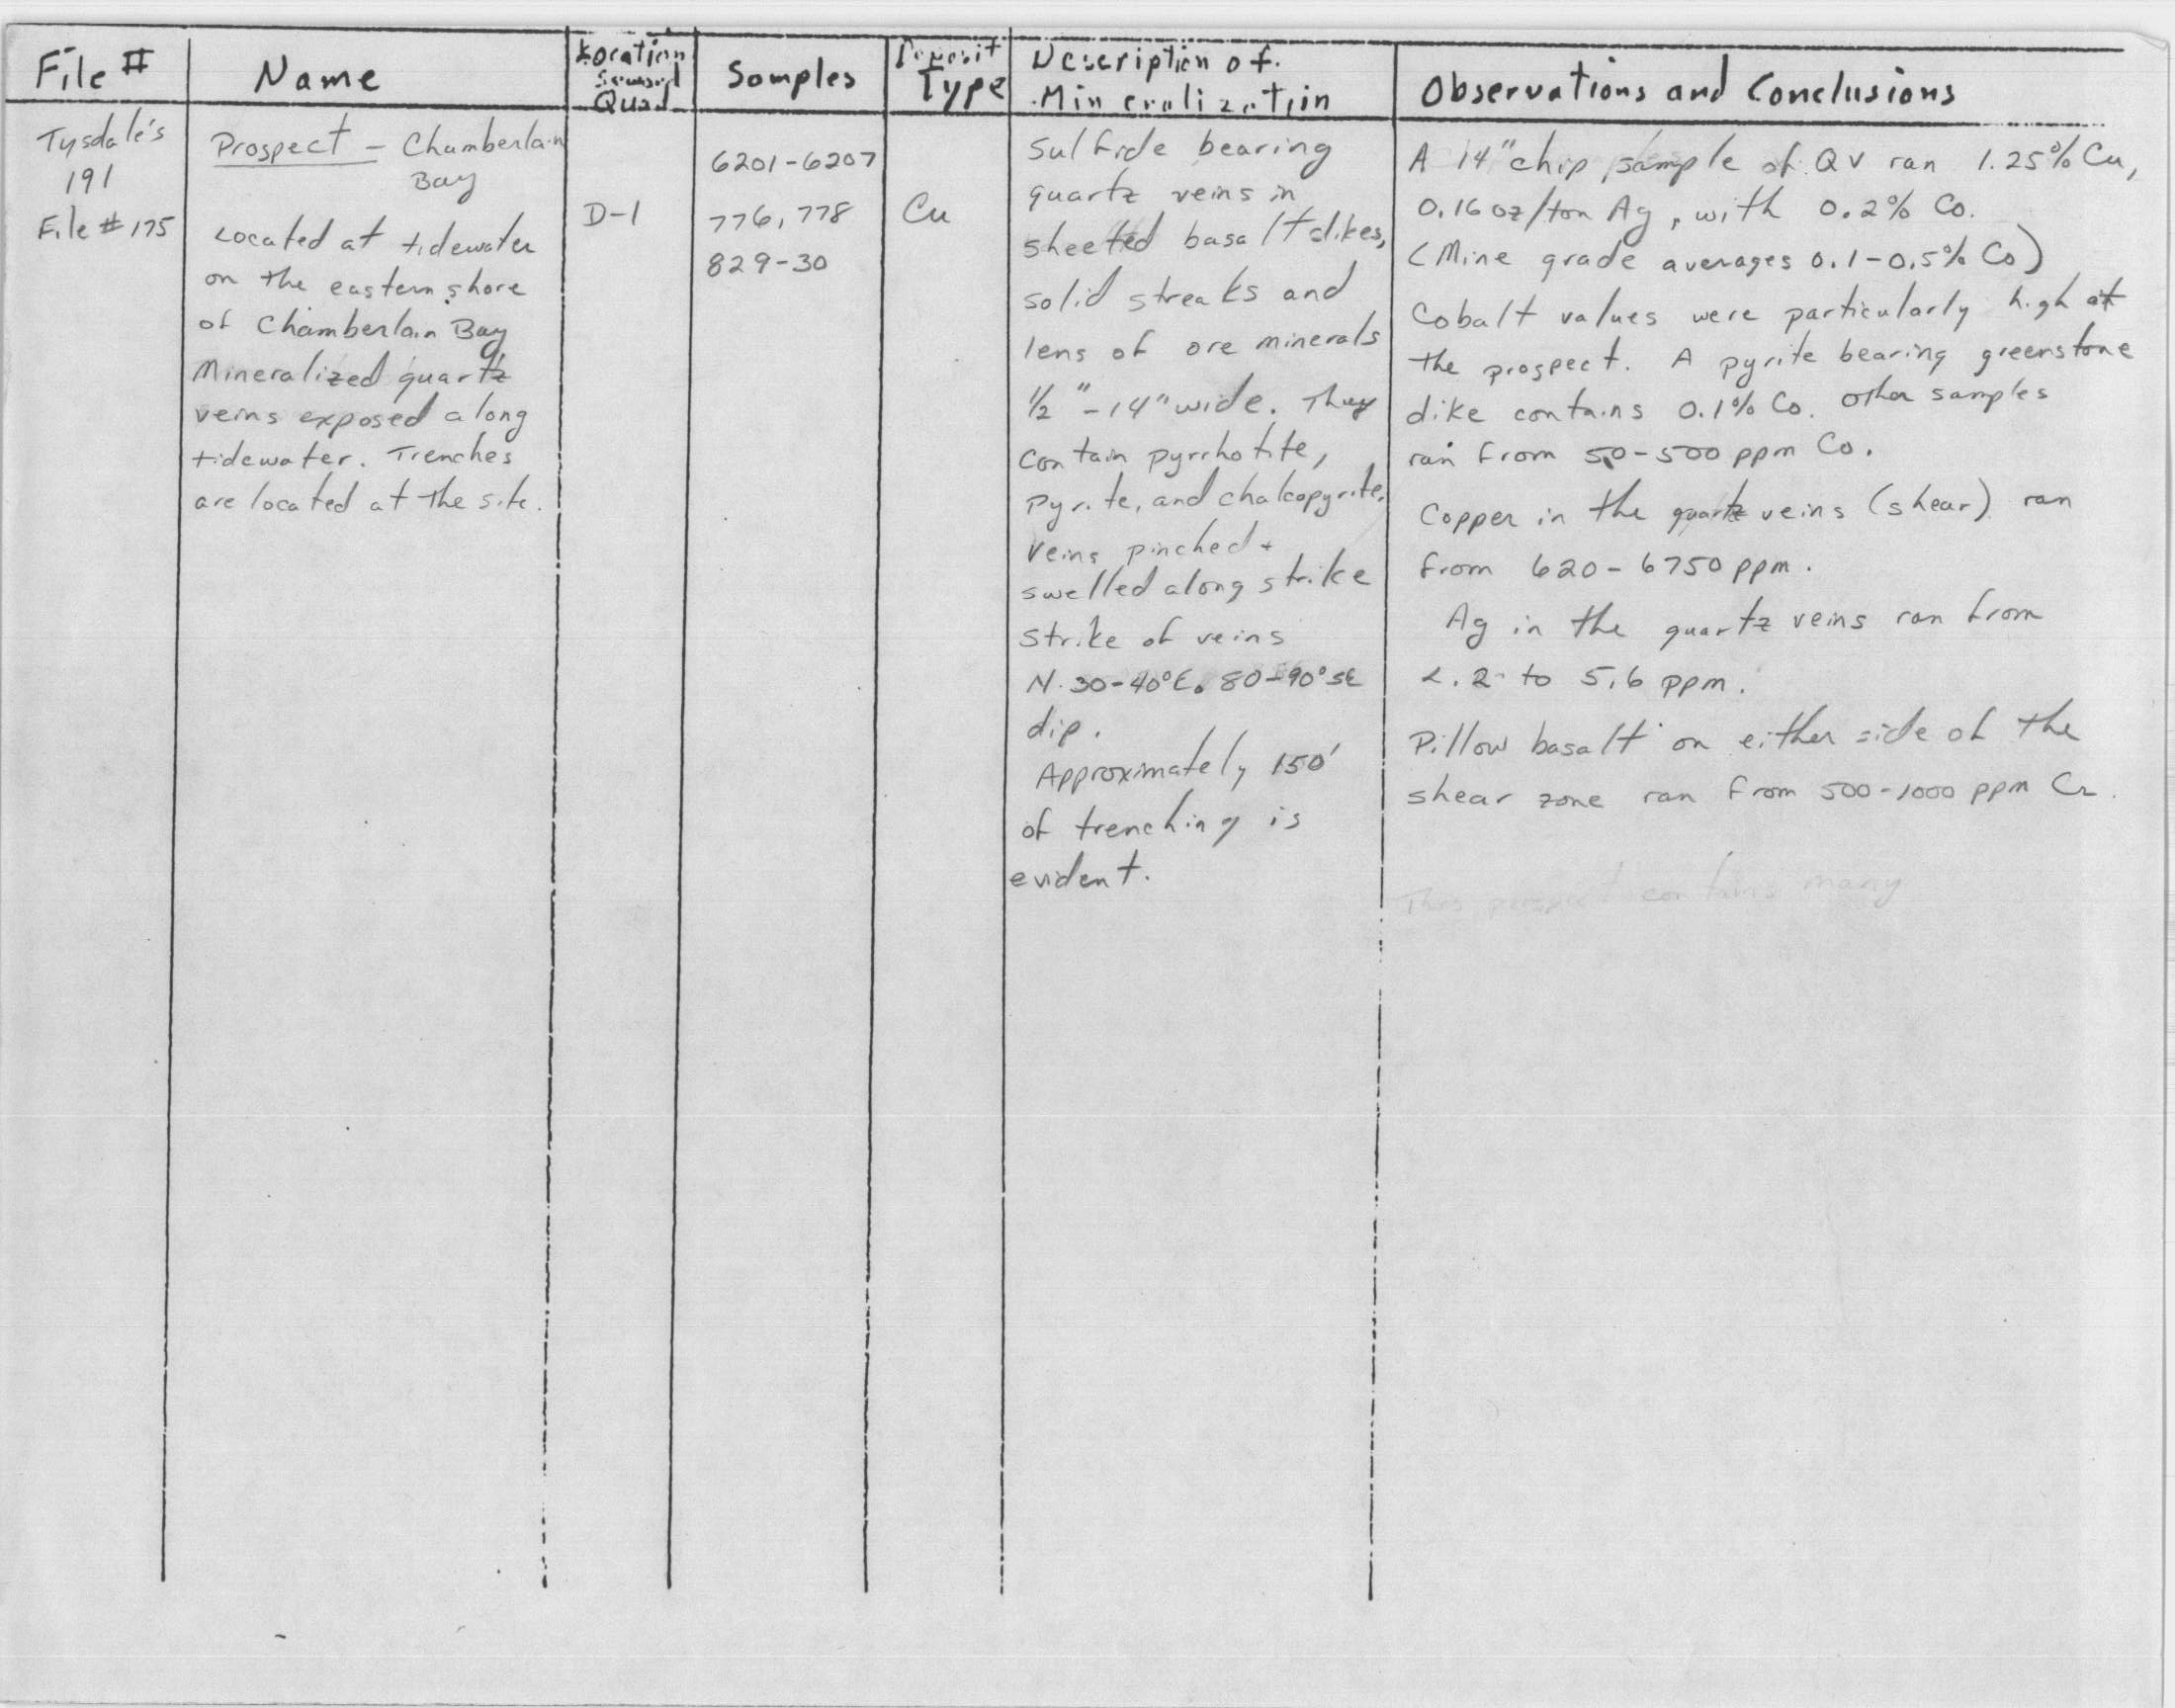 File #
Name
Location
Seward
Quad
Samples
Deposit
Type
Description of
Mineralization
Observations and Conclusions
Tysdale's
191
File # 175
Prospect - Chamberlain
Bay
Located at tidewater
on the eastern shore
of Chamberlain Bay
Mineralized quartz
veins exposed along
tidewater. Trenches
are located at the site.
D-1
6201-6207
776, 778
829-30
Cu
Sulfide bearing
quartz veins in
sheeted basalt dikes,
solid streaks and
lens of ore minerals
1/2" - 14" wide. They
contain pyrrhotite,
pyrite, and chalcopyrite.
Veins pinched +
swelled along strike
Strike of veins
N. 30-40°E. 80-90° SE
dip.
Approximately 150'
of trenching is
evident.
A 14" chip sample of QV ran 1.25% Cu,
0.16 oz/ton Ag, with 0.2% Co.
(Mine grade averages 0.1-0.5% Co)
Cobalt values were particularly high at
the prospect. A pyrite bearing greenstone
dike contains 0.1% Co. Other samples
ran from 50-500 ppm Co.
Copper in the quartz veins (shear) ran
from 620-6750 ppm.
Ag in the quartz veins ran from
<.2 to 5.6 ppm.
Pillow basalt on either side of the
shear zone ran from 500-1000 ppm Cr.
This prospect contains many